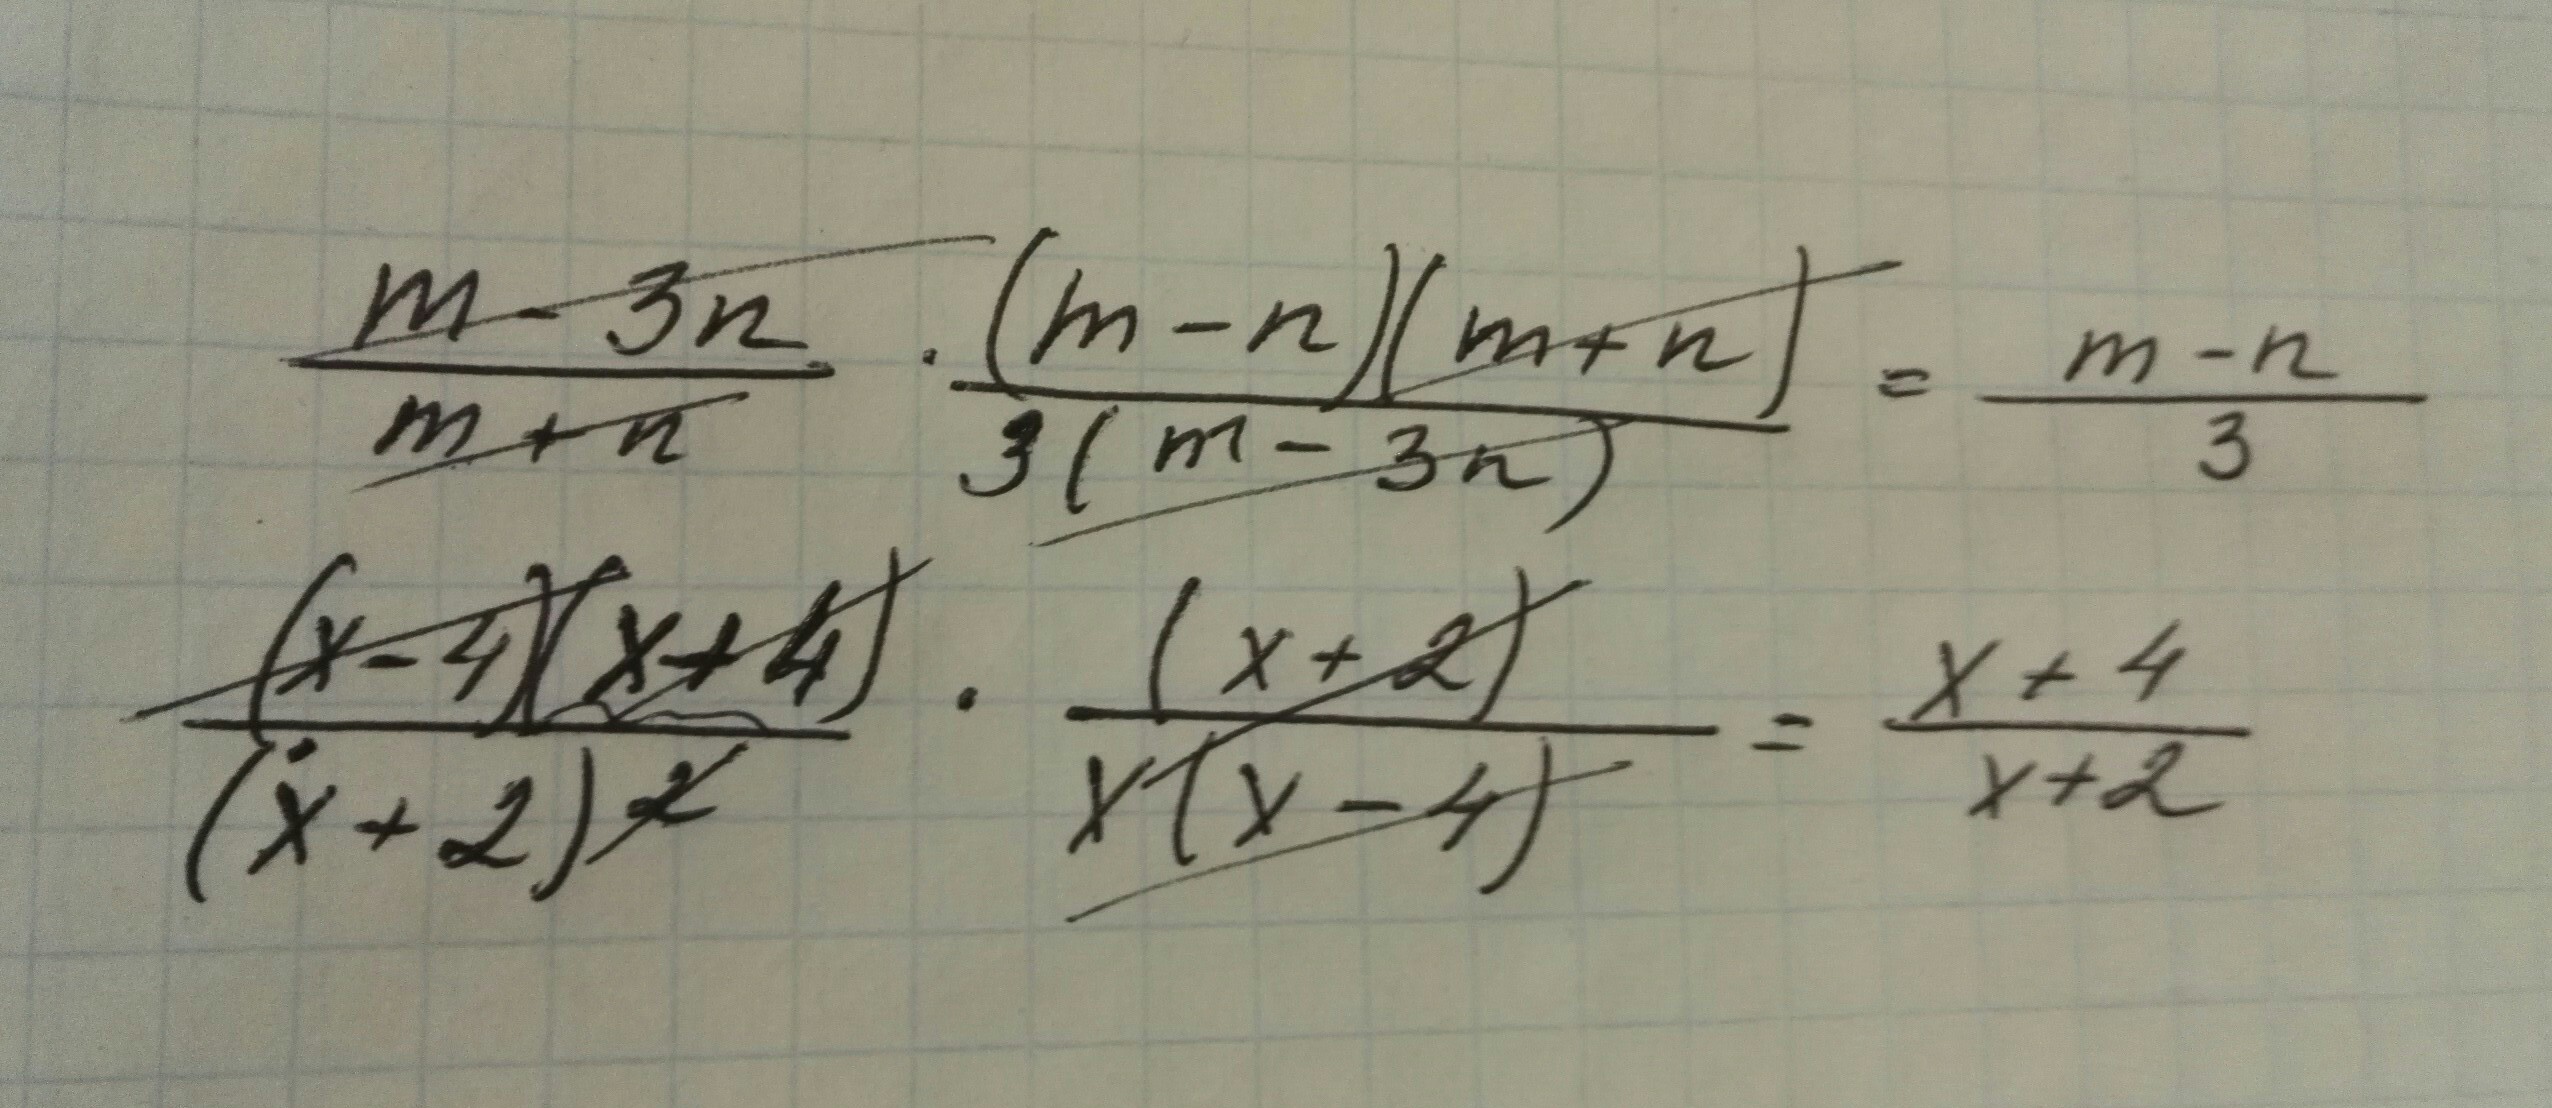 (m - 3n)/(m + n) · ((m - n)(m + n))/(3(m - 3n)) = (m - n)/3
((x - 4)(x + 4))/((x + 2)²) · (x + 2)/(x(x - 4)) = (x + 4)/(x + 2)